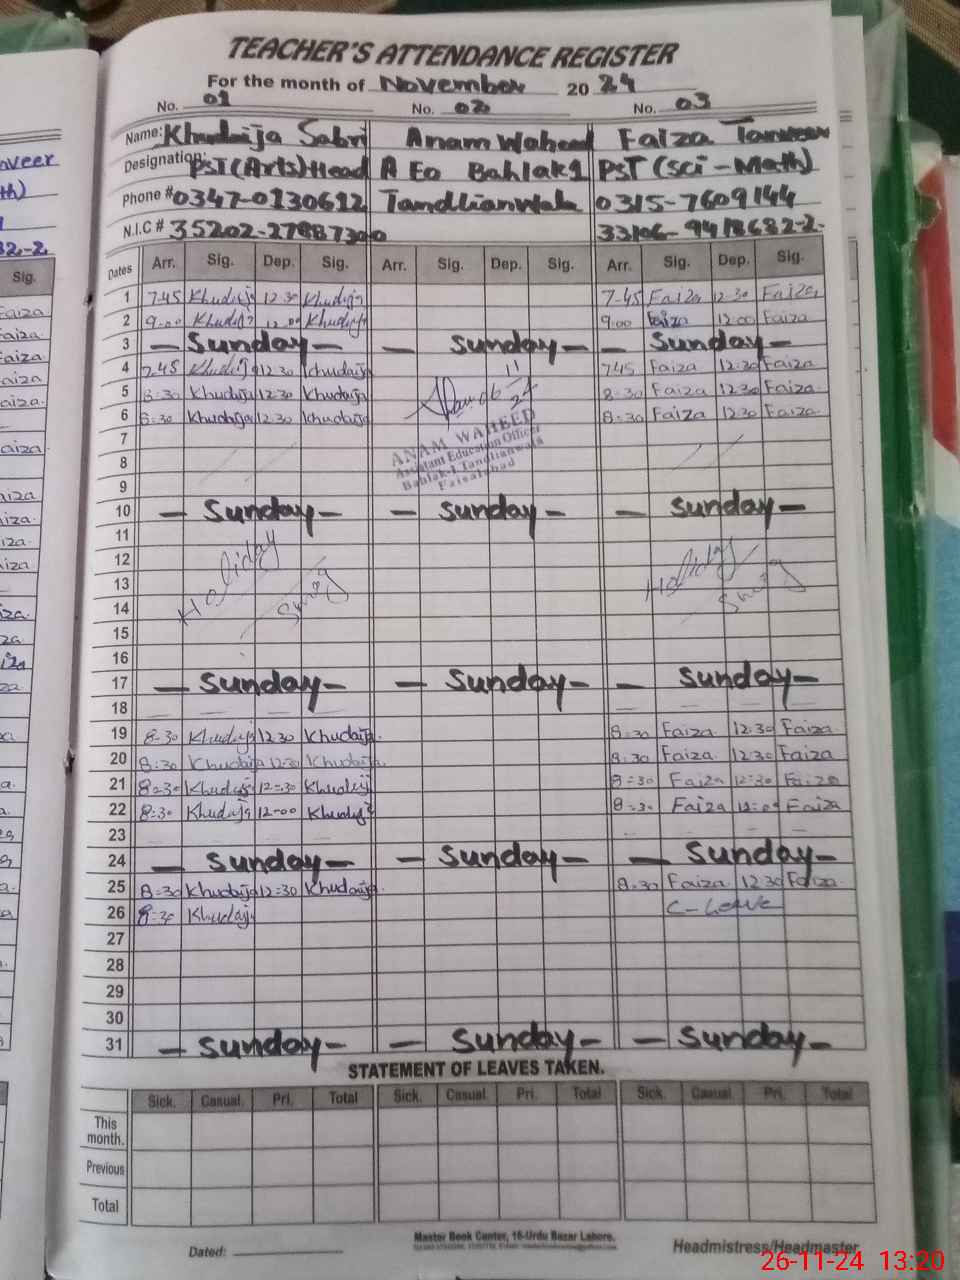 TEACHER'S ATTENDANCE REGISTER
For the month of November 20 24
No. 01 No. 02 No. 03
Name: Khudaija Sabri Anam Waheed Faiza Tanveer
Designation: PST (Arts) Head A Eo Bahlak 1 PST (Sci-Math)
Phone # 0347-0130612 Tandlianwala 0315-7609144
N.I.C # 35202-2788730-0 33106-9418682-2
Dates Arr. Sig. Dep. Sig. Arr. Sig. Dep. Sig. Arr. Sig. Dep. Sig.
1 7-45 Khudaija 12-30 Khudaija 7-45 Faiza 12-30 Faiza
2 9-00 Khudaija 12-00 Khudaija 9-00 Faiza 12-00 Faiza
3 — Sunday — — Sunday — — Sunday —
4 7-45 Khudaija 12-30 Khudaija 7-45 Faiza 12-30 Faiza
5 8-30 Khudaija 12-30 Khudaija 8-30 Faiza 12-30 Faiza
6 8-30 Khudaija 12-30 Khudaija 8-30 Faiza 12-30 Faiza
7
ANAM WAHEED
Assistant Education Officer
Bahlak-1 Tandlianwala
Faisalabad
8
9
10 — Sunday — — Sunday — — Sunday —
11
12 Holiday Holiday
13 Smog Smog
14
15
16
17 — Sunday — — Sunday — — Sunday —
18
19 8-30 Khudaija 12-30 Khudaija 8-30 Faiza 12-30 Faiza
20 8-30 Khudaija 12-30 Khudaija 8-30 Faiza 12-30 Faiza
21 8=30 Khudaija 12=30 Khudaija 8=30 Faiza 12=30 Faiza
22 8-30 Khudaija 12-00 Khudaija 8=30 Faiza 12=00 Faiza
23
24 — Sunday — — Sunday — — Sunday —
25 8=30 Khudaija 12=30 Khudaija 8-30 Faiza 12-30 Faiza
26 8=30 Khudaija C-Leave
27
28
29
30
31 — Sunday — — Sunday — — Sunday —
STATEMENT OF LEAVES TAKEN.
Sick. Casual. Pri. Total Sick. Casual. Pri. Total Sick. Casual. Pri. Total
This month.
Previous
Total
Master Book Center, 16-Urdu Bazar Lahore.
Dated: Headmistress/Headmaster
26-11-24 13:20